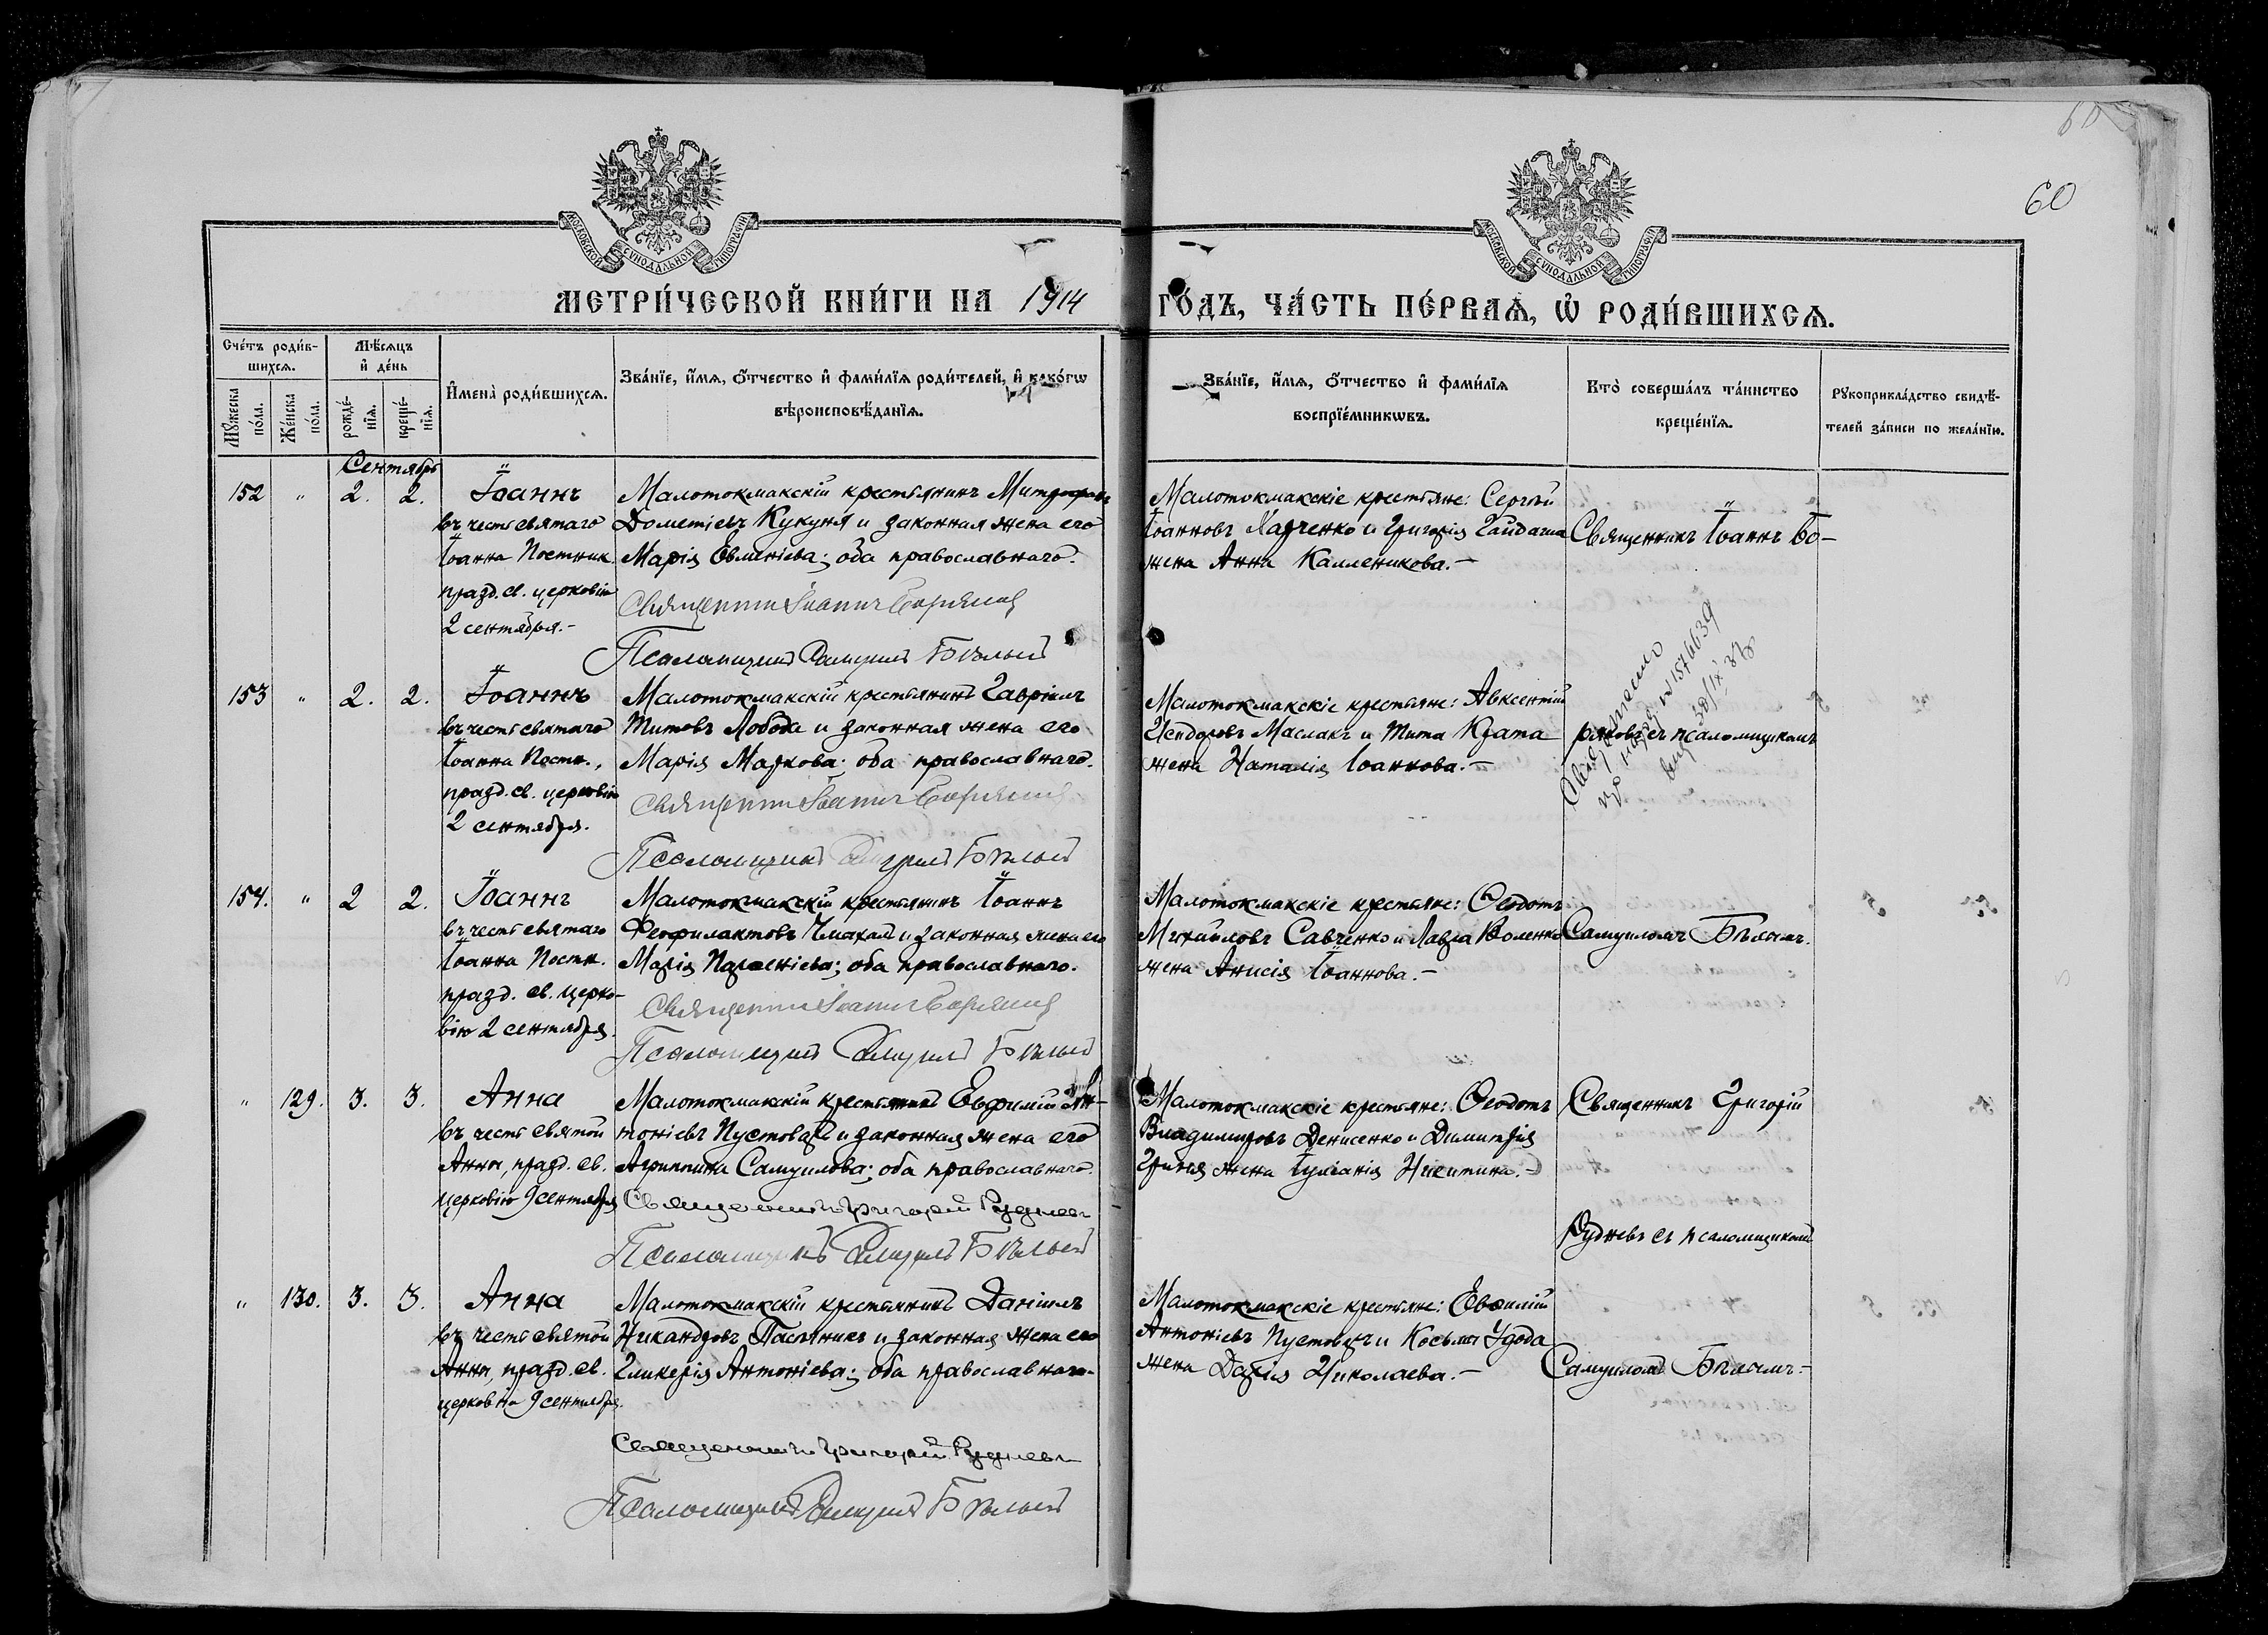 60
МОСКОВСКОЙ СѴНОДАЛЬНОЙ ТИПОГРАФІИ
МОСКОВСКОЙ СѴНОДАЛЬНОЙ ТИПОГРАФІИ
МЕТРИ́ЧЕСКОЙ КНИ́ГИ НА 1914
ГО́ДЪ, ЧА́СТЬ ПЕ́РВАѦ, Ѡ҆ РОДИ́ВШИХСѦ.
Сче́тъ роди́в-
шихсѧ.
Мꙋ́жеска
по́ла.
Же́нска
по́ла.
Мѣ́сѧцъ
и҆ де́нь
рожде́-
нїѧ.
креще́-
нїѧ.
И҆мена̀ роди́вшихсѧ.
Зва́нїе, и҆́мѧ, ѻ҆́тчество и҆ фами́лїѧ роди́телей, и҆ како́гѡ
вѣроисповѣ́данїѧ.
Зва́нїе, и҆́мѧ, ѻ҆́тчество и҆ фами́лїѧ
воспрїе́мникѡвъ.
Кто̀ соверша́лъ та́инство
креще́нїѧ.
Рꙋкоприкла́дство свидѣ́-
телей за́писи по жела́нїю.
Сентябрь
152 " 2. 2. Іоаннъ
въ честь святаго
Іоанна Постник.
празд. св. церковію
2 сентября.-
Малотокмакскій крестьянинъ Митрофанъ
Дометіевъ Кукуня и законная жена его
Марія Евменіева; оба православнаго.
Священникъ Іоаннъ Боряковъ
Псаломщикъ Самуилъ Бѣлый
Малотокмакскіе крестьяне: Сергѣй
Іоанновъ Харченко и Григорія Гайдаша
жена Анна Калленикова.-
Священникъ Іоаннъ Бо-
153 " 2. 2. Іоаннъ
въ честь святаго
Іоанна Постн.,
празд. св. церковію
2 сентября.
Малотокмакскій крестьянинъ Гавріилъ
Титовъ Лобода и законная жена его
Марія Маркова; оба православнаго.
Священникъ Іоаннъ Боряковъ
Псаломщикъ Самуилъ Бѣлый
Малотокмакскіе крестьяне: Авксентій
Исидоровъ Маслакъ и Тита Крата
жена Наталія Іоаннова.-
ряковъ съ псаломщикомъ
154. " 2 2. Іоаннъ
въ честь святаго
Іоанна Постн.
празд. св. церко-
вію 2 сентября.
Малотокмакскій крестьянинъ Іоаннъ
Феофилактовъ и законная жена его
Марія Парѳеніева; оба православнаго.
Священникъ Іоаннъ Боряковъ
Псаломщикъ Самуилъ Бѣлый
Малотокмакскіе крестьяне: Ѳеодотъ
Михаиловъ Савченко и Лавра
жена Анисія Іоаннова.-
Самуиломъ Бѣлымъ.
" 129. 3. 3. Анна
въ честь святой
Анны, празд. св.
церковію 9 сентября
Малотокмакскій крестьянинъ Евфимій Ан-
тоніевъ Пустоваръ и законная жена его
Агриппина Самуилова; оба православнаго.
Священникъ Григорій Рудневъ
Псаломщикъ Самуилъ Бѣлый
Малотокмакскіе крестьяне: Ѳеодотъ
Владимировъ Денисенко и Димитрія
жена Іуліанія Никитина.-
Священникъ Григорій
Рудневъ съ псаломщикомъ
" 130. 3. 3. Анна
въ честь святой
Анны, празд. св.
церковію 9 сентября.
Малотокмакскій крестьянинъ Даніилъ
Никандровъ Пасѣчникъ и законная жена его
Гликерія Антоніева; оба православнаго.
Священникъ Григорій Рудневъ
Псаломщикъ Самуилъ Бѣлый
Малотокмакскіе крестьяне: Евѳимій
Антоніевъ и Косьмы Удода
жена Дарія Николаева.-
Самуиломъ Бѣлымъ.-